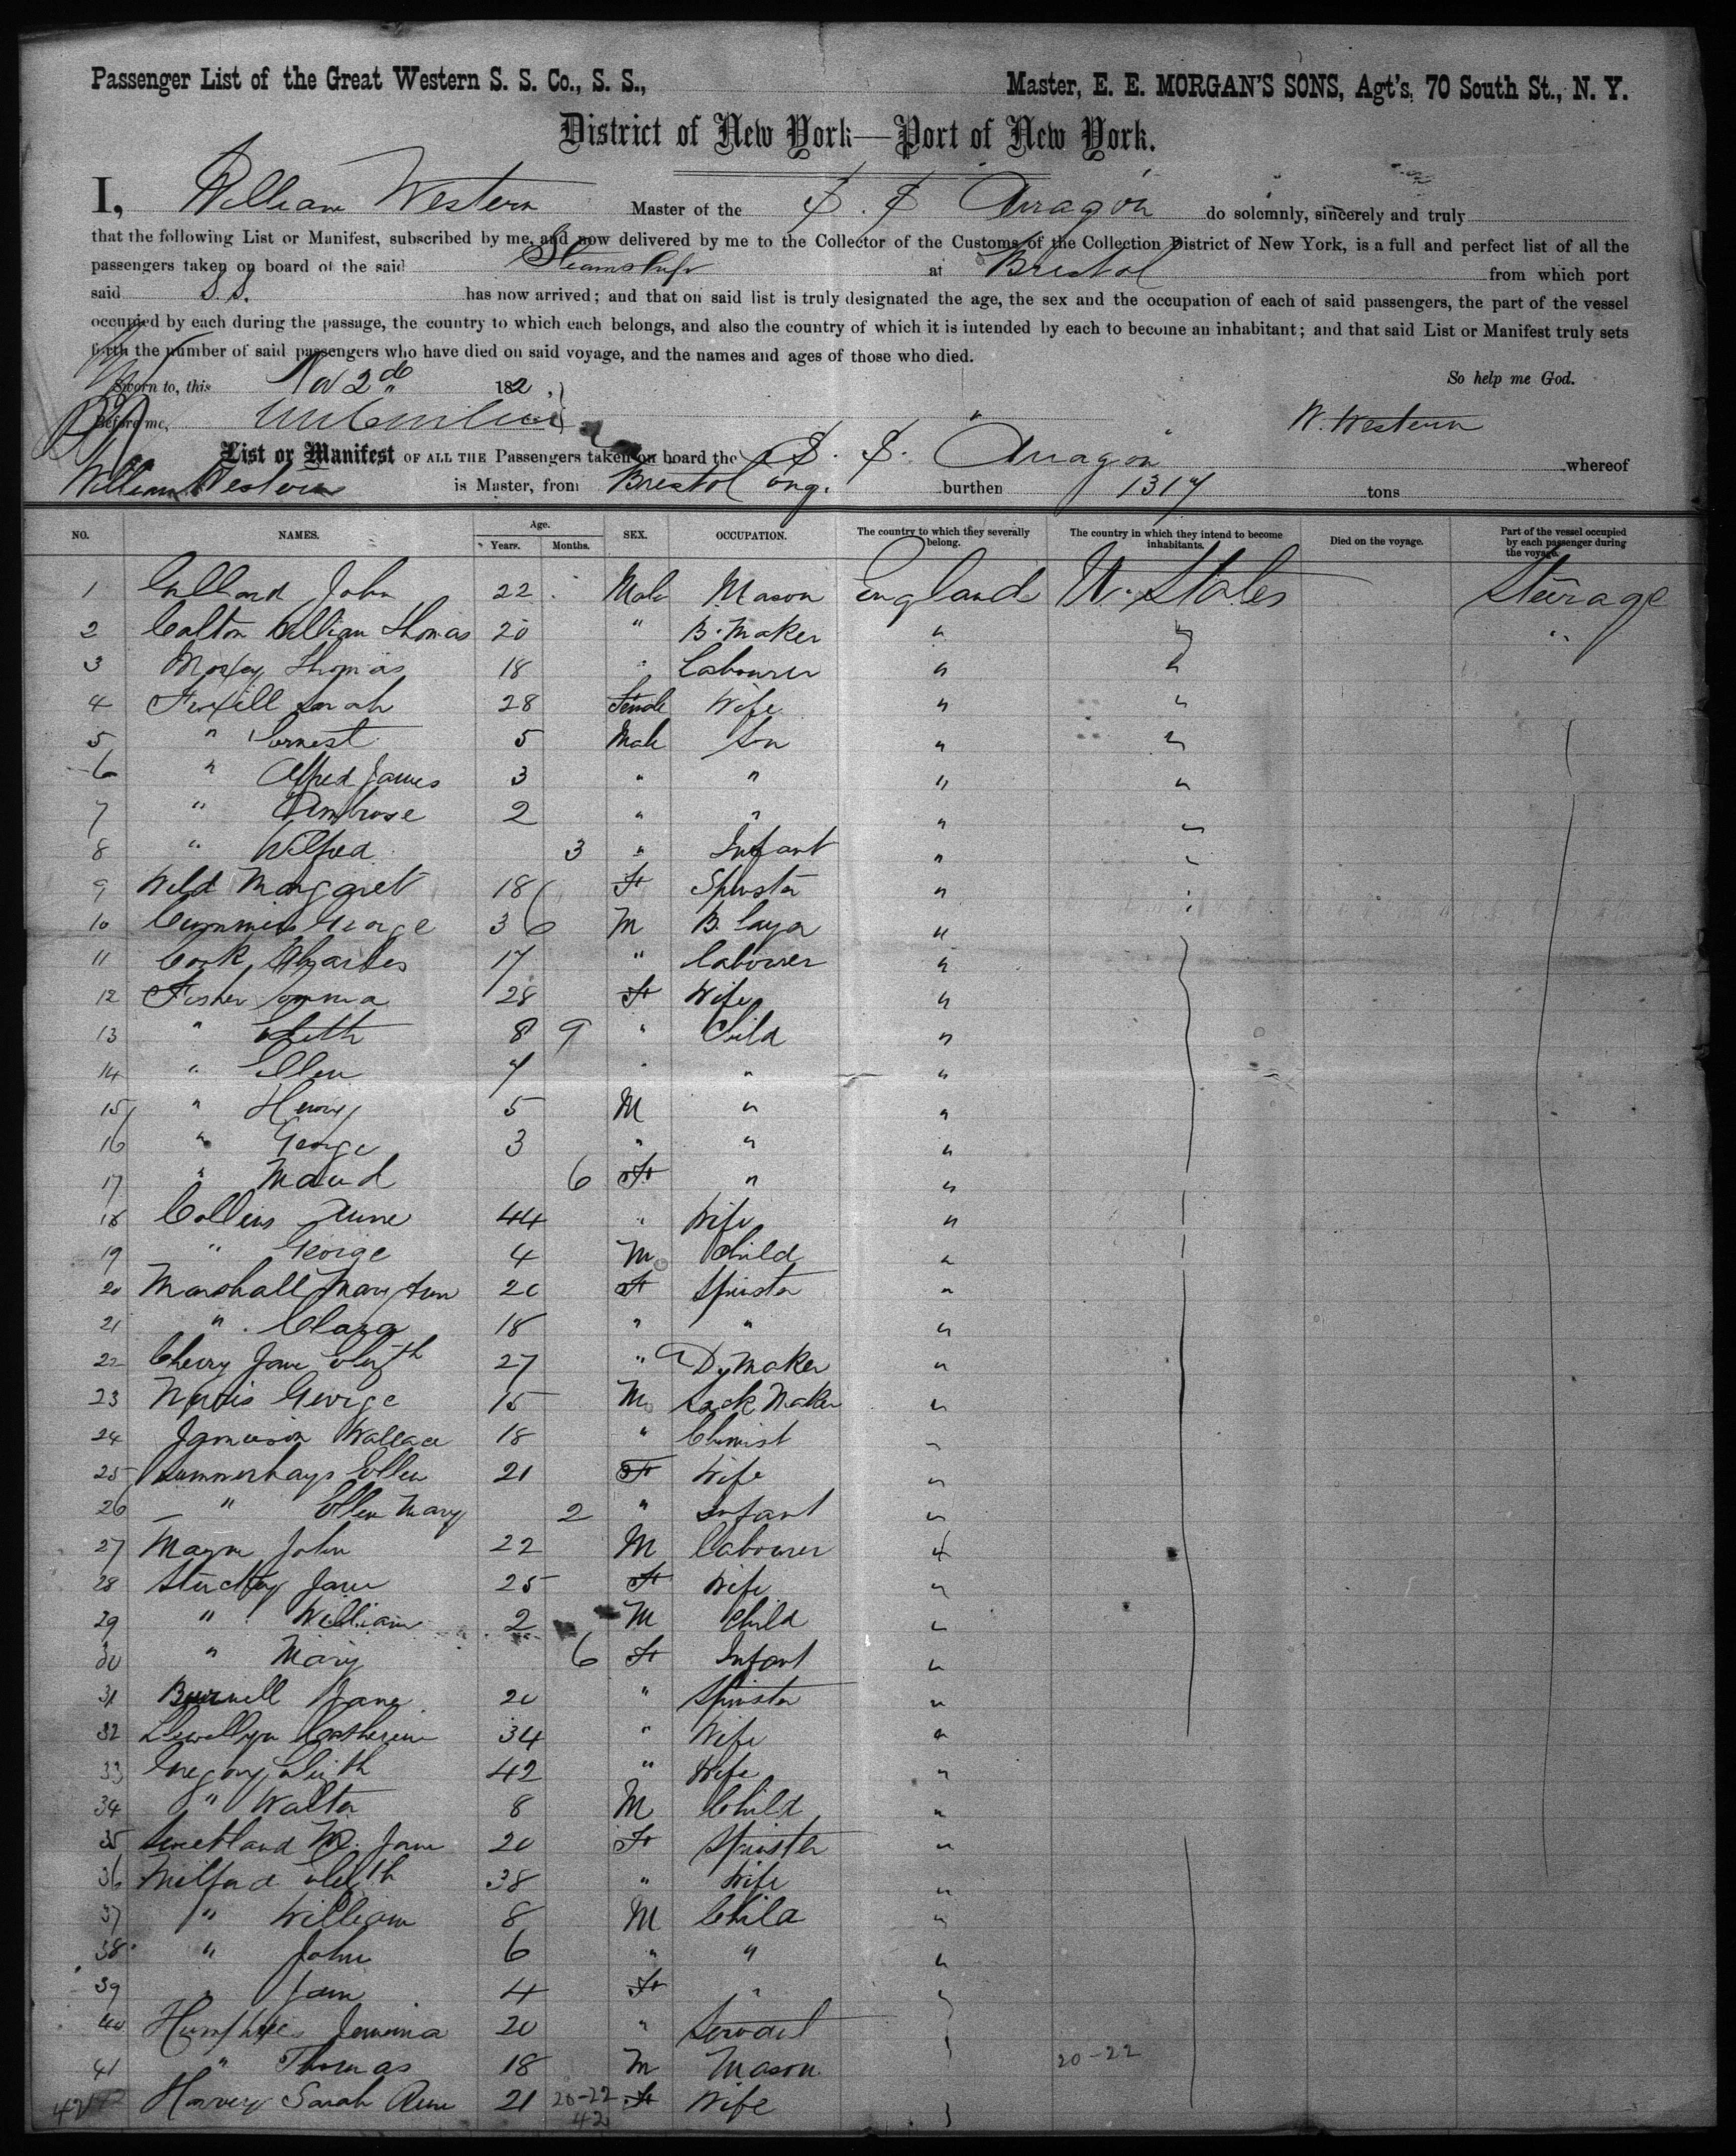 Passenger List of the Great Western S. S. Co., S. S., Master, E. E. MORGAN'S SONS, Agt's, 70 South St., N. Y.
District of New York—Port of New York.
I, William Western Master of the S. S Arragon do solemnly, sincerely and truly
that the following List or Manifest, subscribed by me, and now delivered by me to the Collector of the Customs of the Collection District of New York, is a full and perfect list of all the
passengers taken on board of the said Steamship at Bristol from which port
said S S. has now arrived; and that on said list is truly designated the age, the sex and the occupation of each of said passengers, the part of the vessel
occupied by each during the passage, the country to which each belongs, and also the country of which it is intended by each to become an inhabitant; and that said List or Manifest truly sets
forth the number of said passengers who have died on said voyage, and the names and ages of those who died.
So help me God.
Sworn to, this 2d 1882.
Before me, W. Western
List or Manifest OF ALL THE Passengers taken on board the S. S. Arragon whereof
William Western is Master, from Bristol Eng. burthen 1317 tons
NO. NAMES. Age. Years. Months. SEX. OCCUPATION. The country to which they severally belong. The country in which they intend to become inhabitants. Died on the voyage. Part of the vessel occupied by each passenger during the voyage.
1 John 22 Male Mason England U. States Steerage
2 Colton William Thomas 20 " B. Maker " " "
3 Moxey Thomas 18 " Labourer " "
4 Sarah 28 Female Wife " "
5 " Ernest 5 Male Son " "
6 " Alfred James 3 " " " "
7 " Ambrose 2 " " " "
8 " Wilfred 3 " Infant " "
9 Weld Margaret 18 F Spinster " "
10 Cummins George 36 M B. Layer "
11 Cook Charles 17 " Labourer "
12 Fisher Emma 28 F Wife "
13 " Elizth 8 9 " Child "
14 " Ellen 7 " " "
15 " Henry 5 M " "
16 " George 3 " " "
17 " Maud 6 F " "
18 Collins Jane 44 " Wife "
19 " George 4 M Child "
20 Marshall Mary Ann 20 F Spinster "
21 " Clara 18 " " "
22 Cherry Jane Elizth 27 " Maker "
23 George 15 M Sack Maker "
24 Jameson Wallace 18 " Chemist "
25 Summerhays Ellen 21 F Wife "
26 " Ellen Mary 2 " Infant "
27 Mayne John 22 M Labourer "
28 Stuckey Jane 25 F Wife "
29 " William 2 M Child "
30 " Mary 6 F Infant "
31 Burnell Jane 20 " Spinster "
32 Llewellyn Catherine 34 " Wife "
33 Gregory Elizth 42 " Wife "
34 " Walter 8 M Child "
35 Sweetland M. Jane 20 F Spinster "
36 Milford Elizth 38 " Wife "
37 " William 8 M Child "
38 " John 6 " " "
39 " Jane 4 F " "
40 Humphries Jemima 20 " Servant
41 " Thomas 18 M Mason 20-22
42 Harvey Sarah Ann 21 20-22 F Wife
42